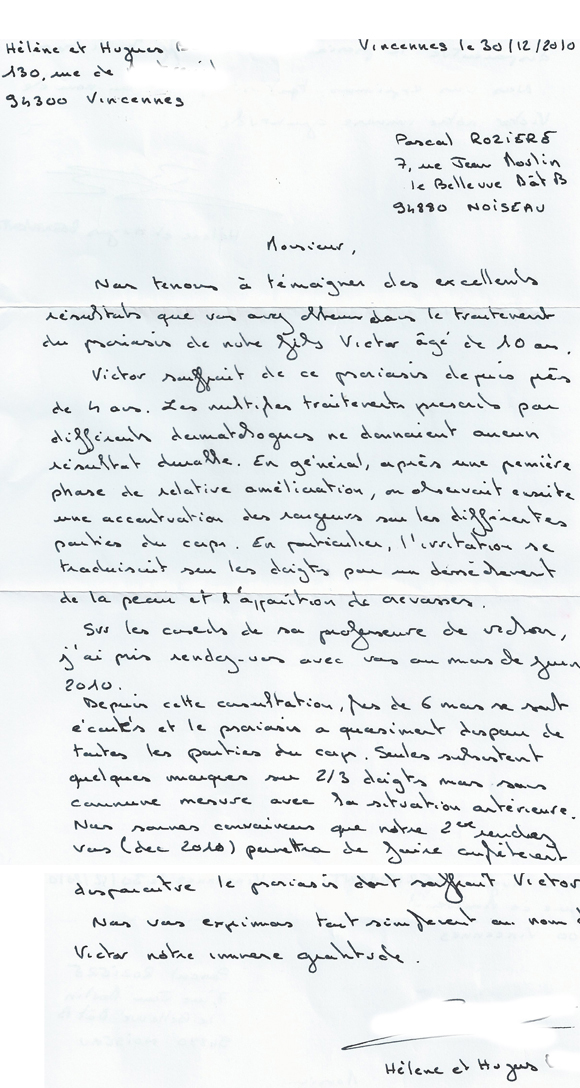 Hélène et Hugues
Vincennes le 30/12/2010
130, rue de
94300 Vincennes
Pascal ROZIERE
7, rue Jean Moulin
le Bellevue Bât B
94880 NOISEAU
Monsieur,
Nous tenons à témoigner des excellents
résultats que vous avez obtenu dans le traitement
du psoriasis de notre fils Victor âgé de 10 ans.
Victor souffrait de ce psoriasis depuis près
de 4 ans. Les multiples traitements prescrits par
différents dermatologues ne donnaient aucun
résultat durable. En général, après une première
phase de relative amélioration, on observait ensuite
une accentuation des rougeurs sur les différentes
parties du corps. En particulier, l'irritation se
traduisait sur les doigts par un dessèchement
de la peau et l'apparition de crevasses.
Sur les conseils de sa professeure de violon,
j'ai pris rendez-vous avec vous au mois de juin
2010.
Depuis cette consultation, près de 6 mois se sont
écoulés et le psoriasis a quasiment disparu de
toutes les parties du corps. Seules subsistent
quelques marques sur 2/3 doigts mais sans
commune mesure avec la situation antérieure.
Nous sommes convaincus que notre 2ème rendez
vous (dec 2010) permettra de faire complètement
disparaitre le psoriasis dont souffrait Victor
Nous vous exprimons tout simplement au nom d
Victor notre immense gratitude.
Hélène et Hugues